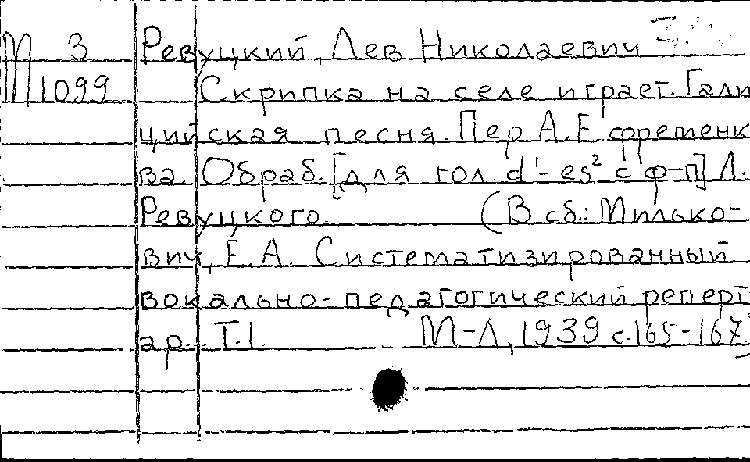 М 3 Ревуцкий, Лев Николаевич
1099 Скрипка на селе играет. Гали
цийская песня. Пер А. Ефременк
ва. Обраб. [для гол d¹-es² с ф-п] Л.
Ревуцкого. (В сб.: Милько-
вич, Е.А. Систематизированный
вокально-педагогический реперт
ар. Т.1. М-Л, 1939 с.165-167